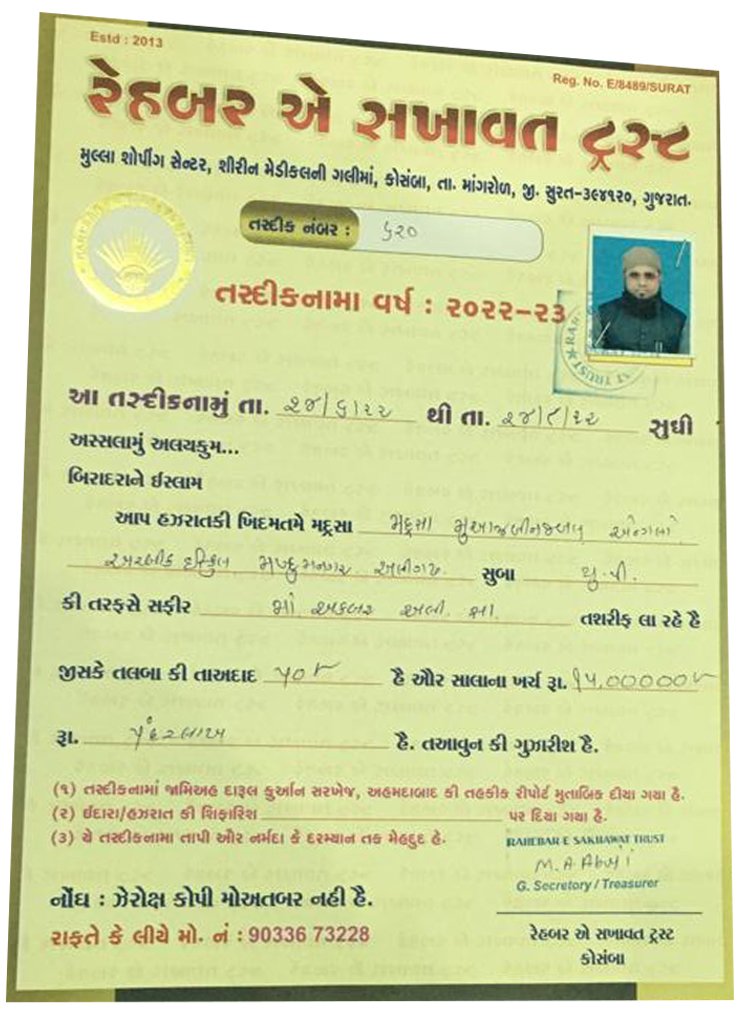 Estd : 2013
Reg. No. E/8489/SURAT
રેહબર એ સખાવત ટ્રસ્ટ
મુલ્લા શોપીંગ સેન્ટર, શીરીન મેડીકલની ગલીમાં, કોસંબા, તા. માંગરોળ, જી. સુરત-૩૯૪૧૨૦, ગુજરાત.
તસ્દીક નંબર : ૬૨૦
તસ્દીકનામા વર્ષ : ૨૦૨૨-૨૩
આ તસ્દીકનામું તા. ૨૪/૬/૨૨ થી તા. ૨૪/૯/૨૨ સુધી
અસ્સલામું અલયકુમ...
બિરાદરાને ઈસ્લામ
આપ હઝરાતકી ખિદમતમે મદ્રસા મદ્રસા
સુબા યુ.પી.
કી તરફસે સફીર મો. અકબર અલી. સા. તશરીફ લા રહે હૈ
જીસકે તલબા કી તાઅદાદ ૫૦ હૈ ઔર સાલાના ખર્ચ રૂા. ૧૫,૦૦૦૦૦
રૂા. પંદરલાખ હૈ. તઆવુન કી ગુઝારીશ હૈ.
(૧) તસ્દીકનામાં જામિઅહ દારૂલ કુર્આન સરખેજ, અહમદાબાદ કી તહકીક રીપોર્ટ મુતાબિક દીયા ગયા હૈ.
(૨) ઈદારા/હઝરાત કી શિફારિશ પર દિયા ગયા હૈ.
(૩) યે તસ્દીકનામા તાપી ઔર નર્મદા કે દરમ્યાન તક મેહદુદ હે.
RAHEBAR E SAKHAWAT TRUST
G. Secretory / Treasurer
નોંધ : ઝેરોક્ષ કોપી મોઅતબર નહી હૈ.
રાફતે કે લીયે મો. નં : 90336 73228
રેહબર એ સખાવત ટ્રસ્ટ
કોસંબા